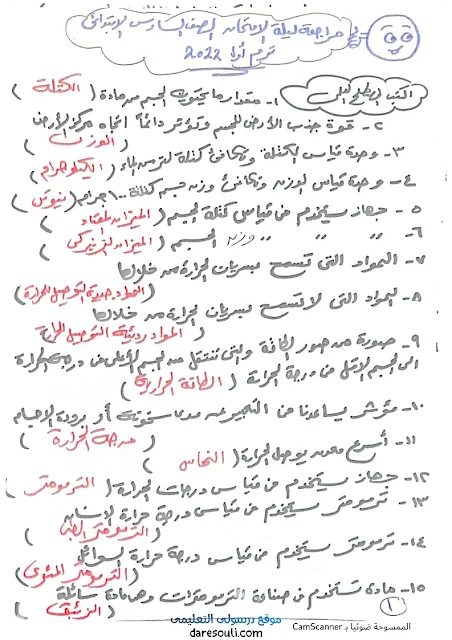 مراجعة ليلة الامتحان الصف السادس الابتدائى
ترم أول 2022
اكتب المصطلح العلمى
١- مقدار ما يحتويه الجسم من مادة ( الكتلة )
٢- قوة جذب الأرض للجسم وتؤثر دائماً اتجاه مركز الأرض
( الوزن )
٣- وحدة قياس الكتلة وتكافئ كتلة لتر من الماء ( الكيلوجرام )
٤- وحدة قياس الوزن وتكافئ وزن جسم كتلته ١٠٠ جرام ( نيوتن )
٥- جهاز يستخدم فى قياس كتلة الجسم ( الميزان المعتاد )
٦- " " " " وزن الجسم ( الميزان الزنبركى )
٧- المواد التى تسمح بسريان الحرارة من خلالها
( المواد جيدة التوصيل للحرارة )
٨- المواد التى لا تسمح بسريان الحرارة من خلالها
( المواد رديئة التوصيل للحرارة )
٩- صورة من صور الطاقة والتى تنتقل من الجسم الأعلى فى درجة الحرارة
الى الجسم الاقل فى درجة الحرارة ( الطاقة الحرارية )
١٠- مؤشر يساعدنا فى التعبير عن مدى سخونة أو برودة الاجسام
( درجة الحرارة )
١١- أسرع معدن يوصل الحرارة ( النحاس )
١٢- جهاز يستخدم فى قياس درجات الحرارة ( الترمومتر )
١٣- ترمومتر يستخدم فى قياس درجة حرارة الإنسان
( الترمومتر الطبى )
١٤- ترمومتر يستخدم فى قياس درجة حرارة السوائل
( الترمومتر المئوى )
١٥- مادة تستخدم فى صناعة الترمومترات وهى مادة سائلة
( الزئبق )
١
موقع درسولى التعليمى
daresouli.com
الممسوحة ضوئيا بـ CamScanner